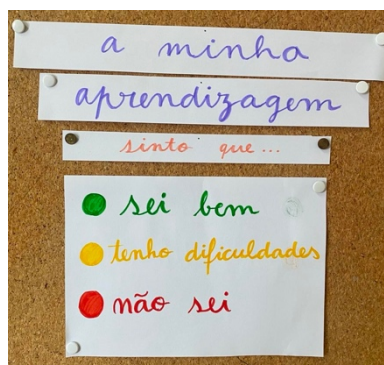 a minha
aprendizagem
sinto que...
sei bem
tenho dificuldades
não sei